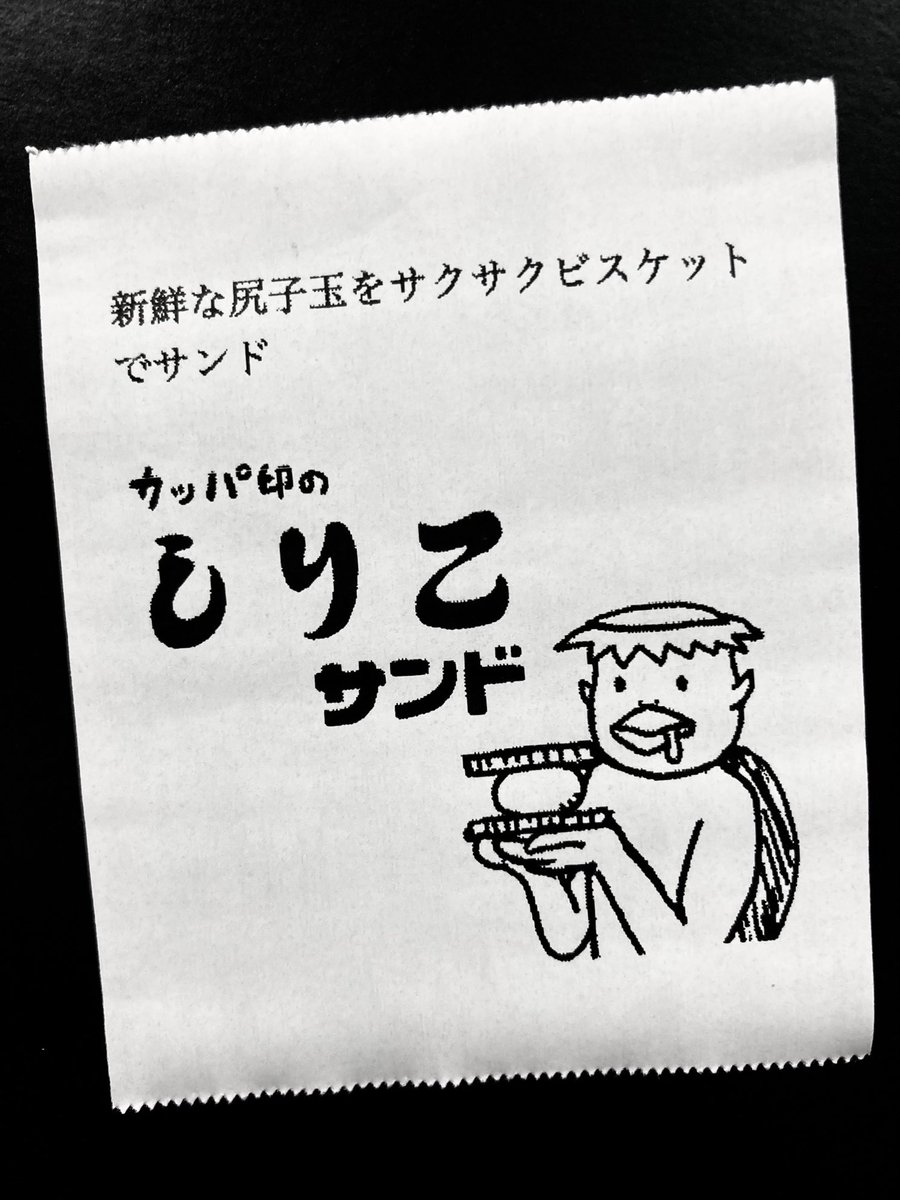 新鮮な尻子玉をサクサクビスケット
でサンド
カッパ印の
しりこ
サンド